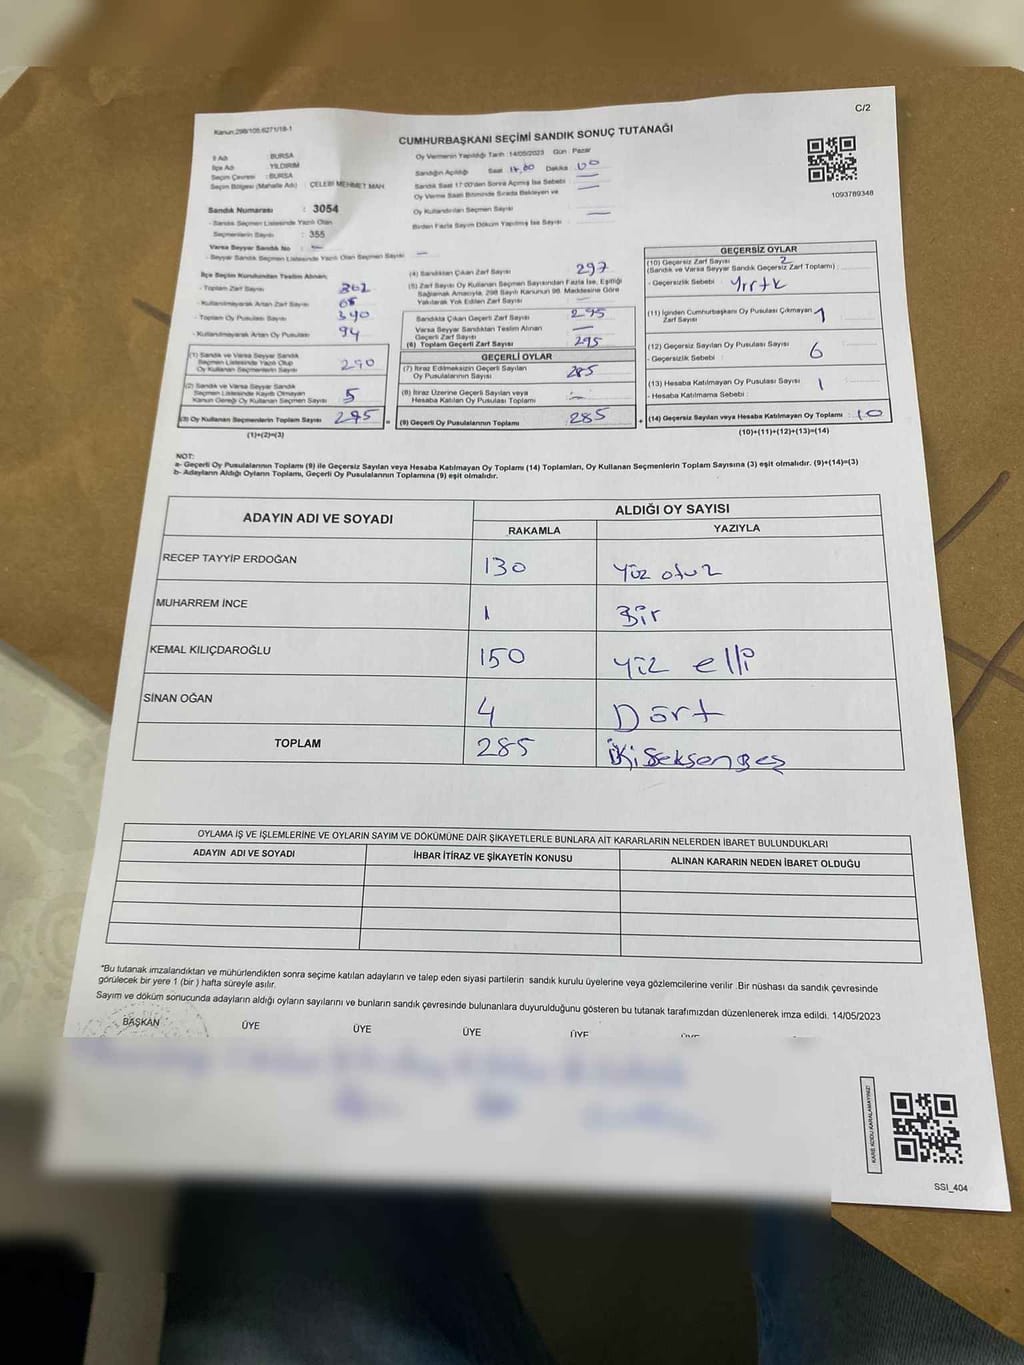 C/2
Kanun:298/105,6271/18-1
CUMHURBAŞKANI SEÇİMİ SANDIK SONUÇ TUTANAĞI
İl Adı : BURSA
İlçe Adı : YILDIRIM
Seçim Çevresi : BURSA
Seçim Bölgesi (Mahalle Adı) : ÇELEBİ MEHMET MAH.
Sandık Numarası : 3054
- Sandık Seçmen Listesinde Yazılı Olan
Seçmenlerin Sayısı : 355
Varsa Seyyar Sandık No : —
- Seyyar Sandık Seçmen Listesinde Yazılı Olan Seçmen Sayısı : —
Oy Vermenin Yapıldığı Tarih : 14/05/2023 Gün : Pazar
Sandığın Açıldığı Saat 17,00 Dakika 00
Sandık Saat 17:00'den Sonra Açılmış İse Sebebi : —
Oy Verme Saati Bitiminde Sırada Bekleyen ve
Oy Kullandırılan Seçmen Sayısı : —
Birden Fazla Sayım Döküm Yapılmış İse Sayısı :
1093789348
İlçe Seçim Kurulundan Teslim Alınan;
- Toplam Zarf Sayısı : 362
- Kullanılmayarak Artan Zarf Sayısı :
- Toplam Oy Pusulası :
- Kullanılmayarak Artan Oy Pusulası : 94
(1) Sandık ve Varsa Seyyar Sandık
Seçmen Listesinde Yazılı Olup
Oy Kullanan Seçmen Sayısı : 290
(2) Sandık ve Varsa Seyyar Sandık
Seçmen Listesinde Kayıtlı Olmayan
Kanun Gereği Oy Kullanan Seçmen Sayısı : 5
(3) Oy Kullanan Seçmenlerin Toplam Sayısı : 295
(1)+(2)=(3)
(4) Sandıktan Çıkan Zarf Sayısı : 297
(5) Zarf Sayısı Oy Kullanan Seçmen Sayısından Fazla İse, Eşitliği
Sağlamak Amacıyla, 298 Sayılı Kanunun 98. Maddesine Göre
Yakılarak Yok Edilen Zarf Sayısı : —
Sandıkta Çıkan Geçerli Zarf Sayısı : 295
Varsa Seyyar Sandıktan Teslim Alınan
Geçerli Zarf Sayısı : —
(6) Toplam Geçerli Zarf Sayısı : 295
GEÇERLİ OYLAR
(7) İtiraz Edilmeksizin Geçerli Sayılan
Oy Pusulalarının Sayısı : 285
(8) İtiraz Üzerine Geçerli Sayılan veya
Hesaba Katılan Oy Pusulası Toplamı : —
(9) Geçerli Oy Pusulalarının Toplamı : 285
GEÇERSİZ OYLAR
(10) Geçersiz Zarf Sayısı 2
(Sandık ve Varsa Seyyar Sandık Geçersiz Zarf Toplamı) :
- Geçersizlik Sebebi : Yırtık
(11) İçinden Cumhurbaşkanı Oy Pusulası Çıkmayan
Zarf Sayısı : 1
(12) Geçersiz Sayılan Oy Pusulası Sayısı : 6
- Geçersizlik Sebebi :
(13) Hesaba Katılmayan Oy Pusulası Sayısı : 1
- Hesaba Katılmama Sebebi :
(14) Geçersiz Sayılan veya Hesaba Katılmayan Oy Toplamı : 10
(10)+(11)+(12)+(13)=(14)
NOT:
a- Geçerli Oy Pusulalarının Toplamı (9) ile Geçersiz Sayılan veya Hesaba Katılmayan Oy Toplamı (14) Toplamları, Oy Kullanan Seçmenlerin Toplam Sayısına (3) eşit olmalıdır. (9)+(14)=(3)
b- Adayların Aldığı Oyların Toplamı, Geçerli Oy Pusulalarının Toplamına (9) eşit olmalıdır.
ADAYIN ADI VE SOYADI
ALDIĞI OY SAYISI
RAKAMLA YAZIYLA
RECEP TAYYİP ERDOĞAN 130 Yüz otuz
MUHARREM İNCE 1 Bir
KEMAL KILIÇDAROĞLU 150 Yüz elli
SİNAN OĞAN 4 Dört
TOPLAM 285 İki Seksen Beş
OYLAMA İŞ VE İŞLEMLERİNE VE OYLARIN SAYIM VE DÖKÜMÜNE DAİR ŞİKAYETLERLE BUNLARA AİT KARARLARIN NELERDEN İBARET BULUNDUKLARI
ADAYIN ADI VE SOYADI İHBAR İTİRAZ VE ŞİKAYETİN KONUSU ALINAN KARARIN NEDEN İBARET OLDUĞU
*Bu tutanak imzalandıktan ve mühürlendikten sonra seçime katılan adayların ve talep eden siyasi partilerin sandık kurulu üyelerine veya gözlemcilerine verilir .Bir nüshası da sandık çevresinde
görülecek bir yere 1 (bir ) hafta süreyle asılır.
Sayım ve döküm sonucunda adayların aldığı oyların sayılarını ve bunların sandık çevresinde bulunanlara duyurulduğunu gösteren bu tutanak tarafımızdan düzenlenerek imza edildi. 14/05/2023
BAŞKAN ÜYE ÜYE ÜYE ÜYE ÜYE
KARE KODU KARALAMAYINIZ!
SSI_404